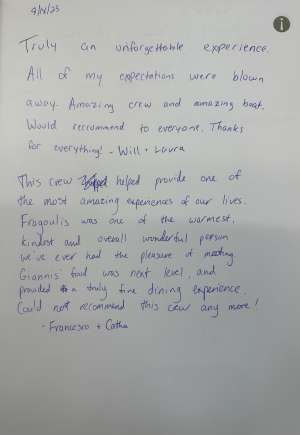 Truly an unforgettable experience.
All of my expectations were blown
away. Amazing crew and amazing boat.
Would recommend to everyone. Thanks
for everything! - Will + Laura
This crew helped provide one of
the most amazing experiences of our lives.
Fragoulis was one of the warmest,
kindest and overall wonderful person
we've ever had the pleasure of meeting.
Giannis' food was next level, and
provided a truly fine dining experience.
Could not recommend this crew any more!
- Francesco + Catha